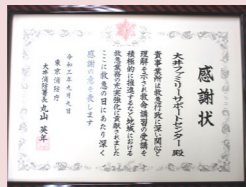 感謝状
大井ファミリーサポートセンター 殿
貴事業所は救急行政に深い関心と
理解を示され救命講習の受講を
積極的に推進するなど地域における
救急業務の充実強化に貢献されました
ここに救急の日にあたり深く
感謝の意を表します
令和三年九月九日
東京消防庁
大井消防署長 丸山 英年